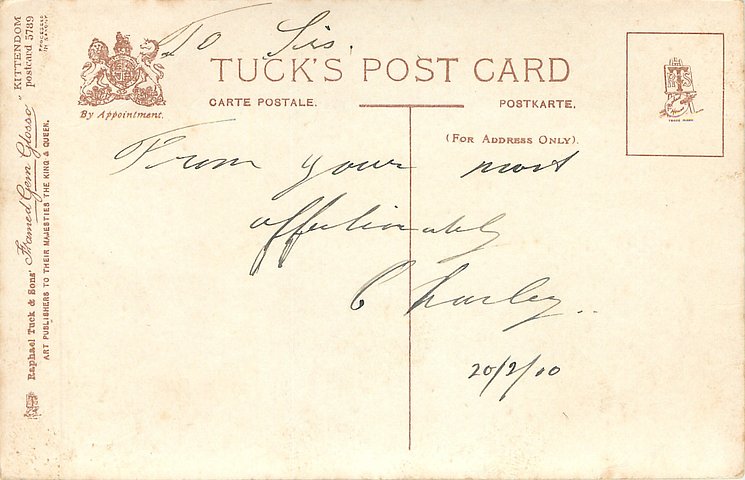 To Sis.
TUCK'S POST CARD
CARTE POSTALE.
POSTKARTE.
By Appointment.
(FOR ADDRESS ONLY).
TRADE MARK
From your most
affectinately
Charley..
20/2/10
Raphael Tuck & Sons' Framed Gem Glosso "KITTENDOM"
postcard 5789
PROCESSED
IN SAXONY
ART PUBLISHERS TO THEIR MAJESTIES THE KING & QUEEN.